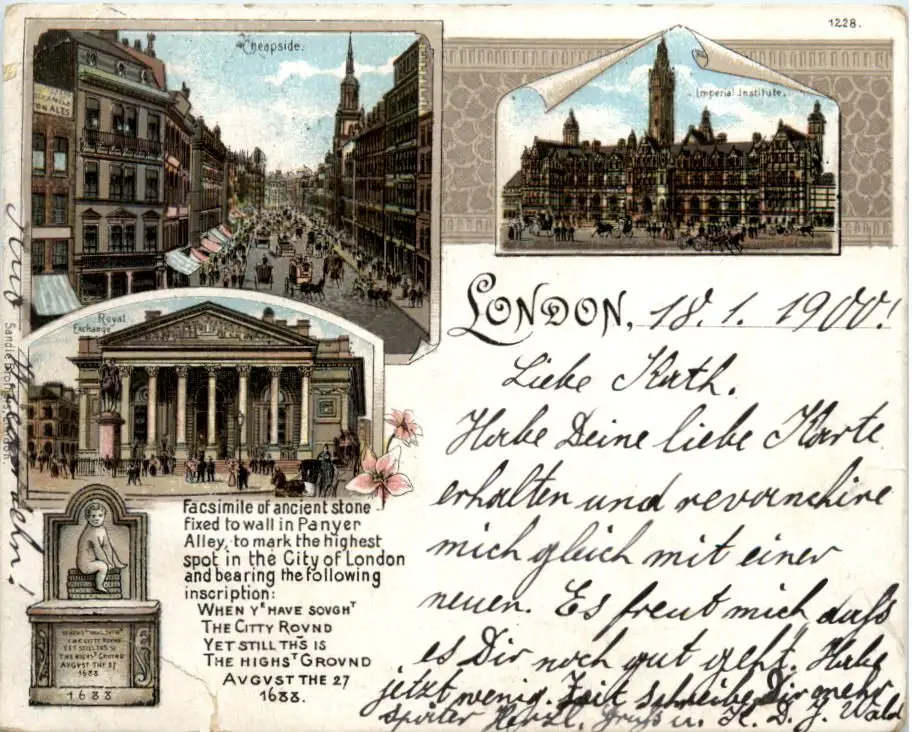 1228.
Cheapside.
ON ALES
Imperial Institute.
Royal
Exchange
LONDON, 18. 1. 1900!
Liebe Kath.
Habe Deine liebe Karte
erhalten und revanchire
mich gleich mit einer
neuen. Es freut mich daß
es Dir noch gut geht. Habe
jetzt wenig Zeit schreibe Dir mehr
später Herzl. Gruß u. K. D. J. Wald
Facsimile of ancient stone
fixed to wall in Panyer
Alley, to mark the highest
spot in the City of London
and bearing the following
inscription:
WHEN Yᴱ HAVE SOVGHᵀ
THE CITTY ROVND
YET STILL THS IS
THE HIGHSᵀ GROVND
AVGVST THE 27
1688.
WHEN YE HAVE SOVGHT
THE CITTY ROVND
YET STILL THS IS
THE HIGHST GROVND
AVGVST THE 27
1688
1688
London.